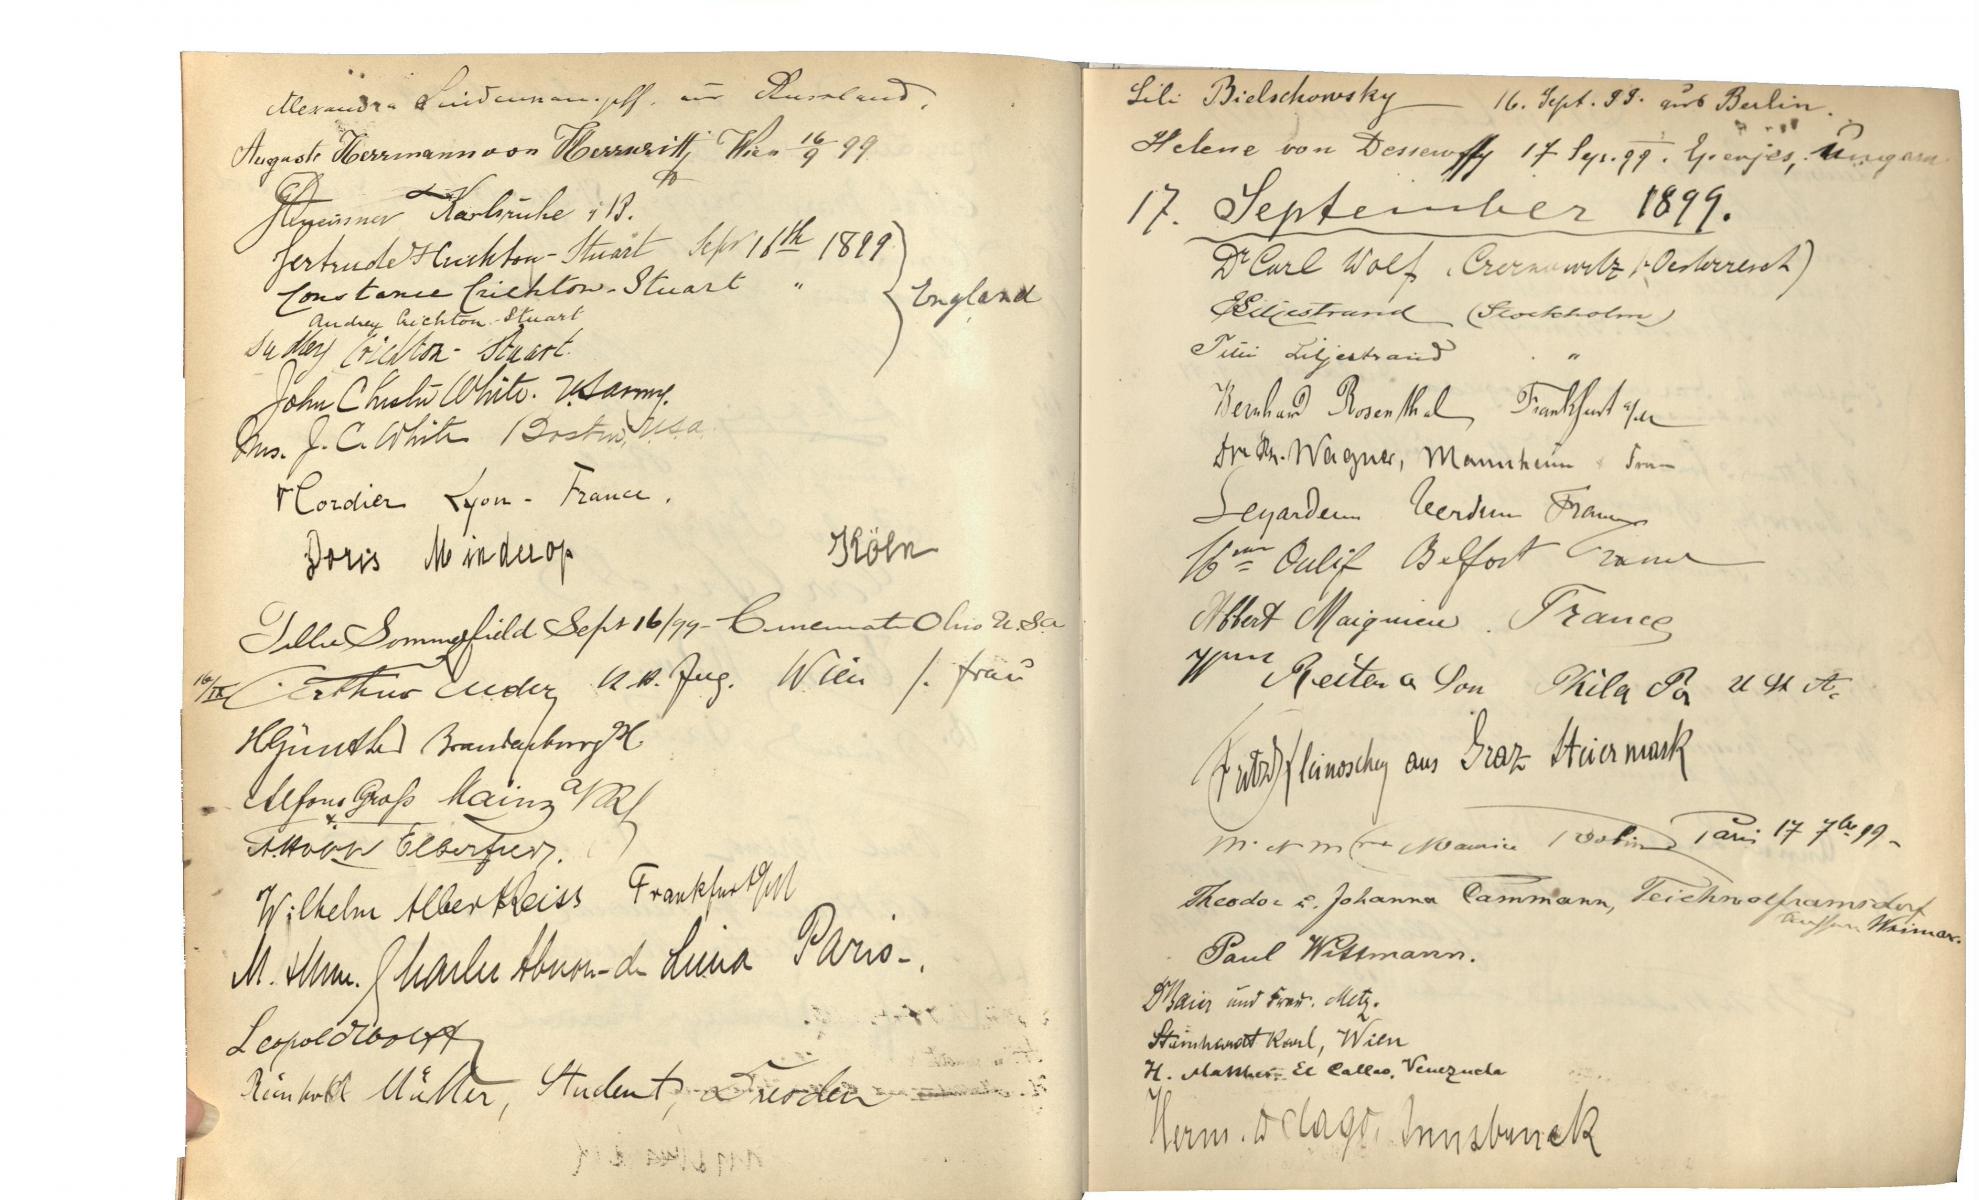 Alexandra aus Russland.
Auguste Herrmann von Wien 16/9 99
Karlsruhe i B.
Gertrude Crichton-Stuart Sept 16th 1899
Constance Crichton-Stuart " England
Audrey Crichton-Stuart
Dudley Crichton-Stuart.
John Chester White. U.S. army.
Mrs. J. C. White Boston, U.S.a.
Cordier Lyon - France.
Doris Minderop Köln
Tillie Sommerfield Sept 16/99- Cincinnati Ohio U.S.a
16/IX Arthur k.k. Ing. Wien /. frau
H Günther Brandenburg a/H
Alfons Groß Mainz a/Rh
Elberfeld.
Wilhelm Albert Reiss Frankfurt a/M
M. & Mme. Charles de Lima Paris-.
Leopold Wolff
Reinhold Müller, Student, Dresden
Lili Bielschowsky 16. Sept. 99. aus Berlin.
Helene von Dessewffy 17 Sep. 99. Eperjes, Ungarn
17. September 1899.
Dr Carl Wolf, Czernowitz (Oesterreich)
Liljestrand (Stockholm)
Liljestrand "
Bernhard Rosenthal, Frankfurt a/M
Wagner, Mannheim Frau
Verdun France
Belfort France
Albert Maignien. France
Wm Reiter & Son Phila Pa U S A.
Fritz Pleinoschey aus Graz Steiermark
M. et Mme Maurice Paris 17 7bre 99-
Theodor u. Johanna Cammann, Teichwolframsdorf
Weimar.
Paul Wittmann.
Dr Baier und Frau. Metz.
Steinhardt Karl, Wien
H. Matthes El Callao, Venezuela
Herm. Innsbruck